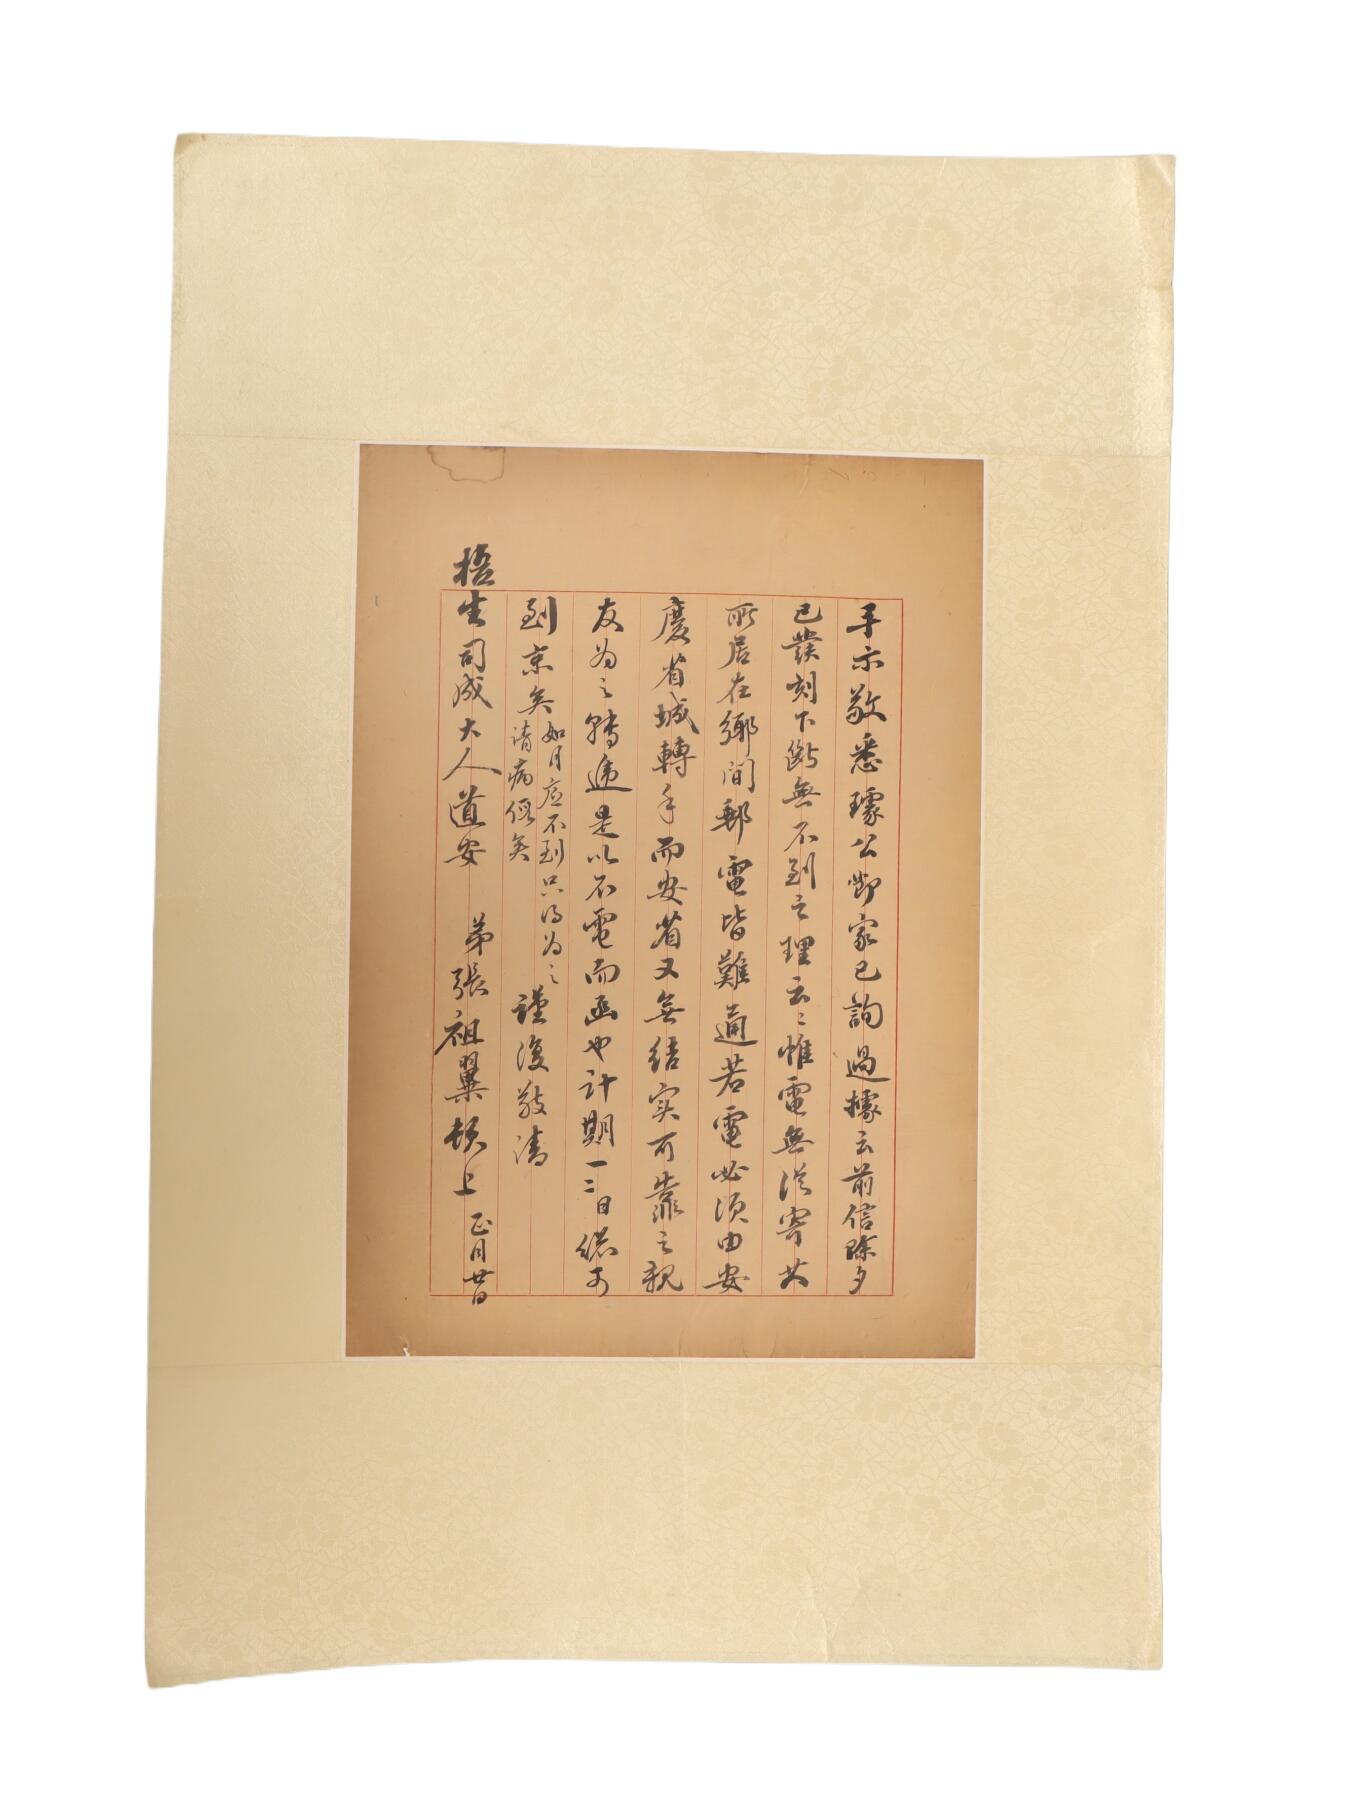 手示敬悉璩公卽家已詢過據云前信除夕
已發刻下斷無不到之理云云惟電無從寄其
所居在鄉間郵電皆難通若電必須由安
慶省城轉手而安省又無結实可靠之親
友為之轉遞是以不電而函也計期一二日總可
到京矣如月底不到只得為之請病假矣謹復敬請
梧生司成大人道安 弟張祖翼頓上 正月廿日